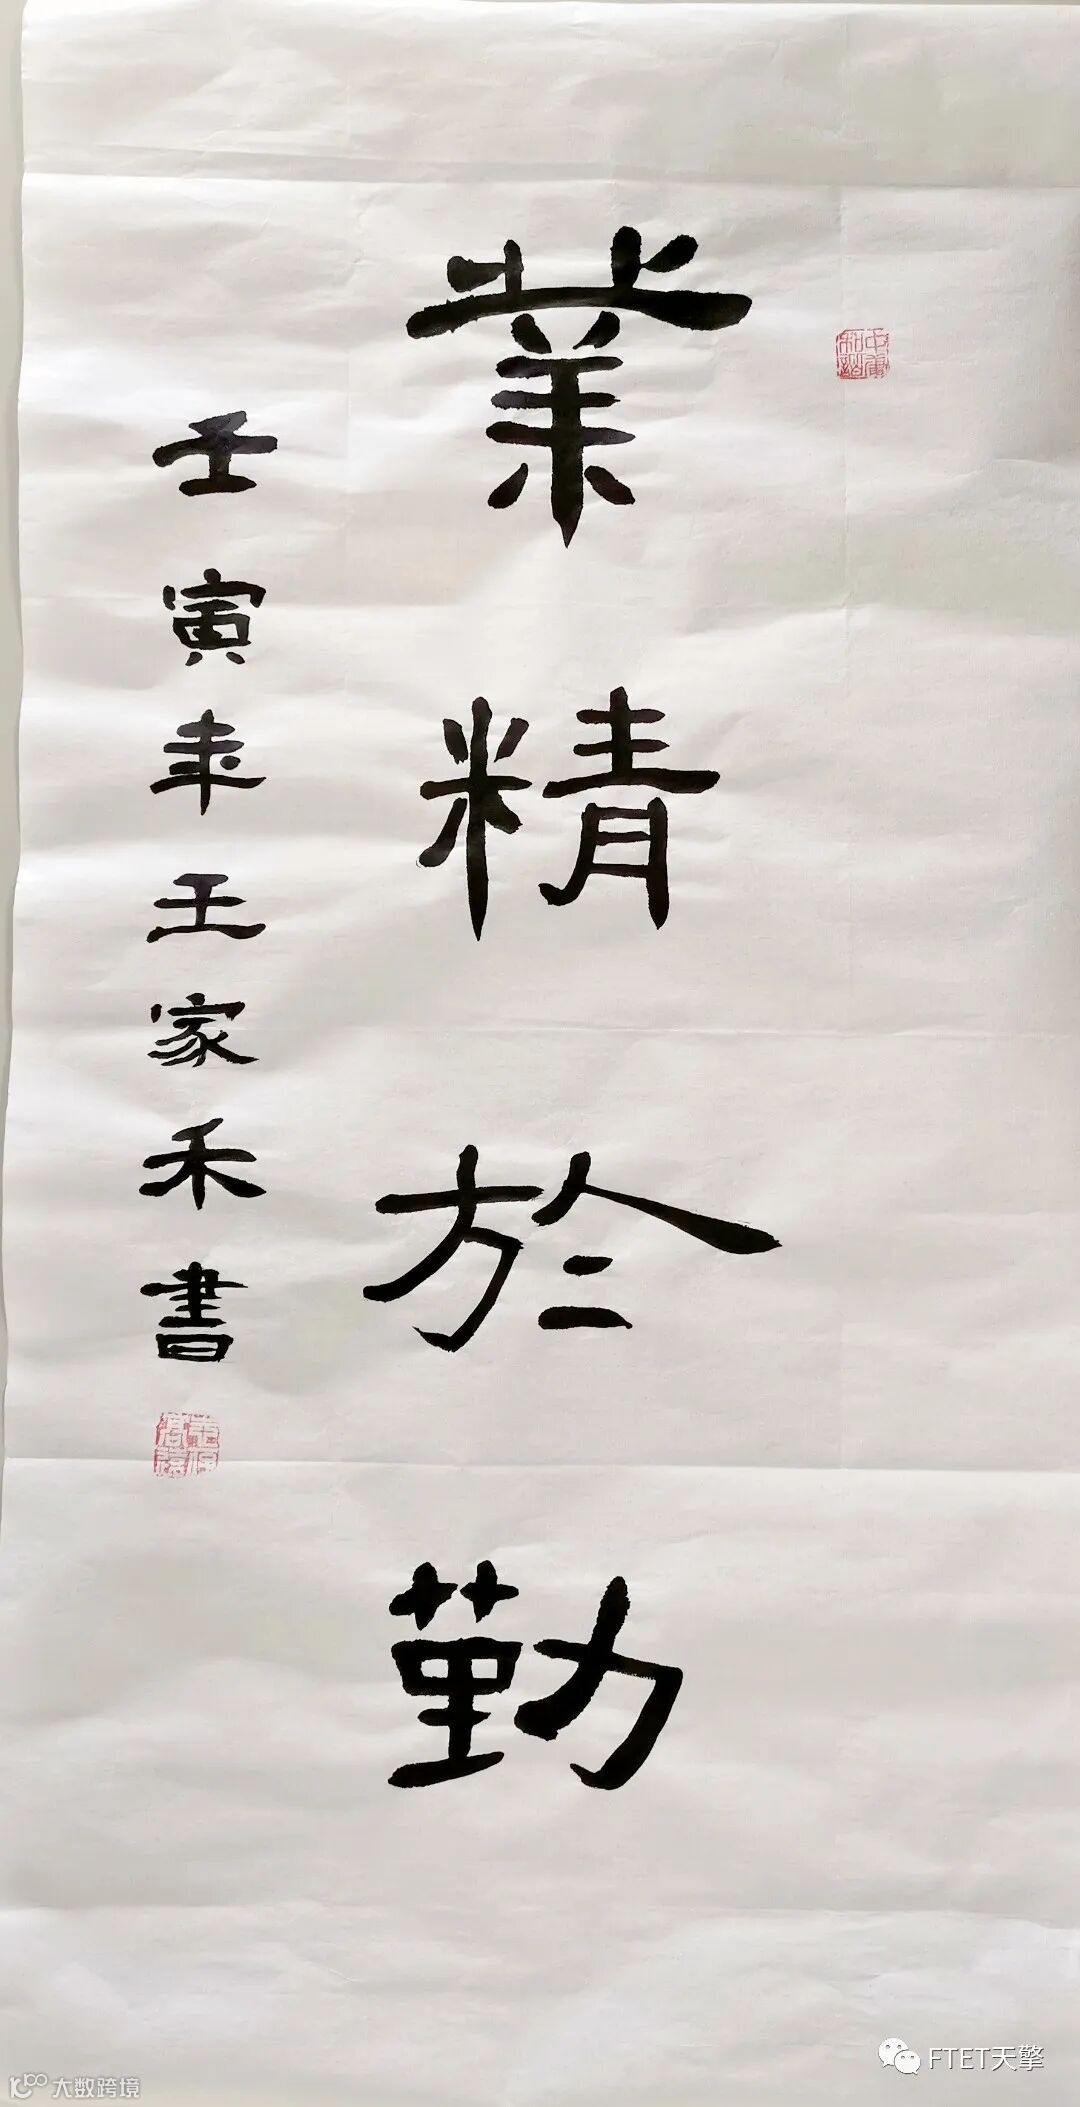 業精於勤
壬寅年王家禾書
FTET天擎
大数跨境